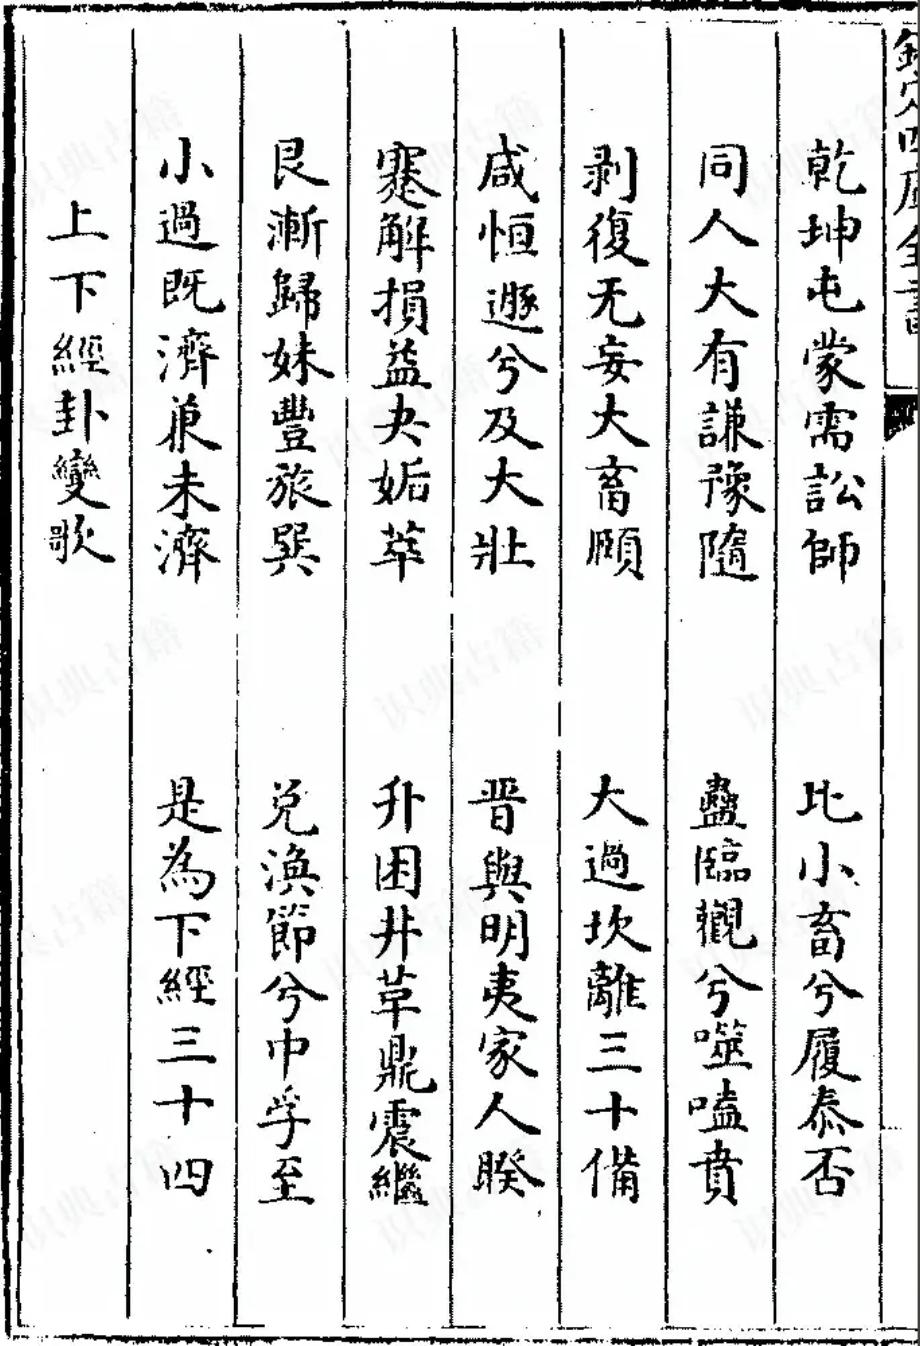 欽定四庫全書
乾坤屯蒙需訟師　比小畜兮履泰否
同人大有謙豫隨　蠱臨觀兮噬嗑賁
剥復无妄大畜頤　大過坎離三十備
咸恒遯兮及大壯　晋與明夷家人睽
蹇解損益夬姤萃　升困井革鼎震繼
艮漸歸妹豐旅巽　兌渙節兮中孚至
小過既濟兼未濟　是為下經三十四
上下經卦變歌